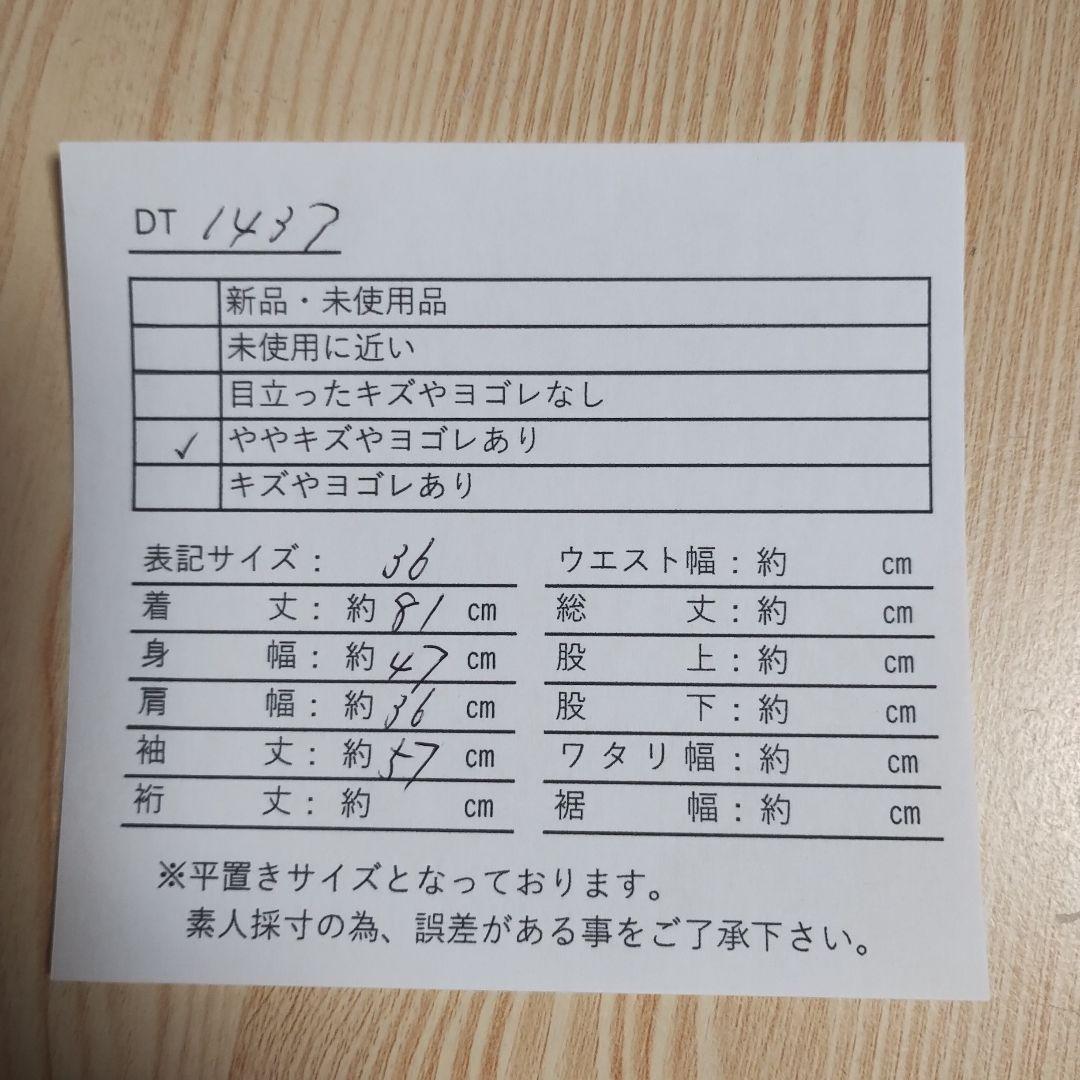 DT 1437
新品・未使用品
未使用に近い
目立ったキズやヨゴレなし
✓ ややキズやヨゴレあり
キズやヨゴレあり
表記サイズ： 36
着丈：約 81 cm
身幅：約 47 cm
肩幅：約 36 cm
袖丈：約 57 cm
裄丈：約 cm
ウエスト幅：約 cm
総丈：約 cm
股上：約 cm
股下：約 cm
ワタリ幅：約 cm
裾幅：約 cm
※平置きサイズとなっております。
素人採寸の為、誤差がある事をご了承下さい。